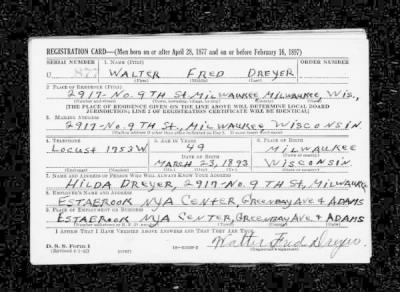 REGISTRATION CARD—(Men born on or after April 28, 1877 and on or before February 16, 1897)
SERIAL NUMBER 1. NAME (Print) ORDER NUMBER
U 877 WALTER FRED DREYER
(First) (Middle) (Last)
2. PLACE OF RESIDENCE (Print)
2917-NO. 9TH ST. MILWAUKEE, MILWAUKEE, WIS.,
(Number and street) (Town, township, village, or city) (County) (State)
[THE PLACE OF RESIDENCE GIVEN ON THE LINE ABOVE WILL DETERMINE LOCAL BOARD
JURISDICTION; LINE 2 OF REGISTRATION CERTIFICATE WILL BE IDENTICAL]
3. MAILING ADDRESS
2917-NO. 9TH ST., MILWAUKEE WISCONSIN.
[Mailing address if other than place indicated on line 2. If same insert word same]
4. TELEPHONE 5. AGE IN YEARS 6. PLACE OF BIRTH
LOCUST 1753W 49 MILWAUKEE
DATE OF BIRTH
MARCH 23, 1893 WISCONSIN.
7. NAME AND ADDRESS OF PERSON WHO WILL ALWAYS KNOW YOUR ADDRESS
HILDA DREYER, 2917-NO. 9TH ST, MILWAUKEE
8. EMPLOYER'S NAME AND ADDRESS
ESTABROOK NYA CENTER, GREENBAY AVE. & ADAMS
9. PLACE OF EMPLOYMENT OR BUSINESS
ESTABROOK NYA CENTER, GREENBAY AVE. & ADAMS
I AFFIRM THAT I HAVE VERIFIED ABOVE ANSWERS AND THAT THEY ARE TRUE.
D. S. S. Form 1
Walter Fred Dreyer